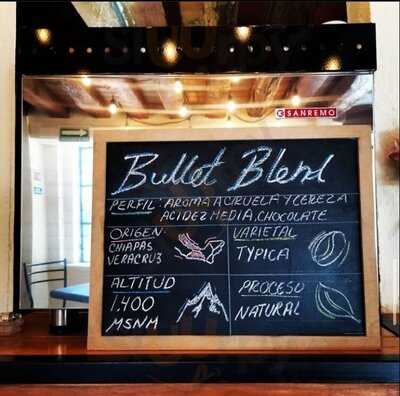 SANREMO
Bullet Blend
PERFIL: AROMA A CIRUELA Y CEBEZA
ACIDEZ MEDIA, CHOCOLATE
ORIGEN:
CHIAPAS
VERACRUZ
VARIETAL
TYPICA
ALTITUD
1.400
MSNM
PROCESO
NATURAL